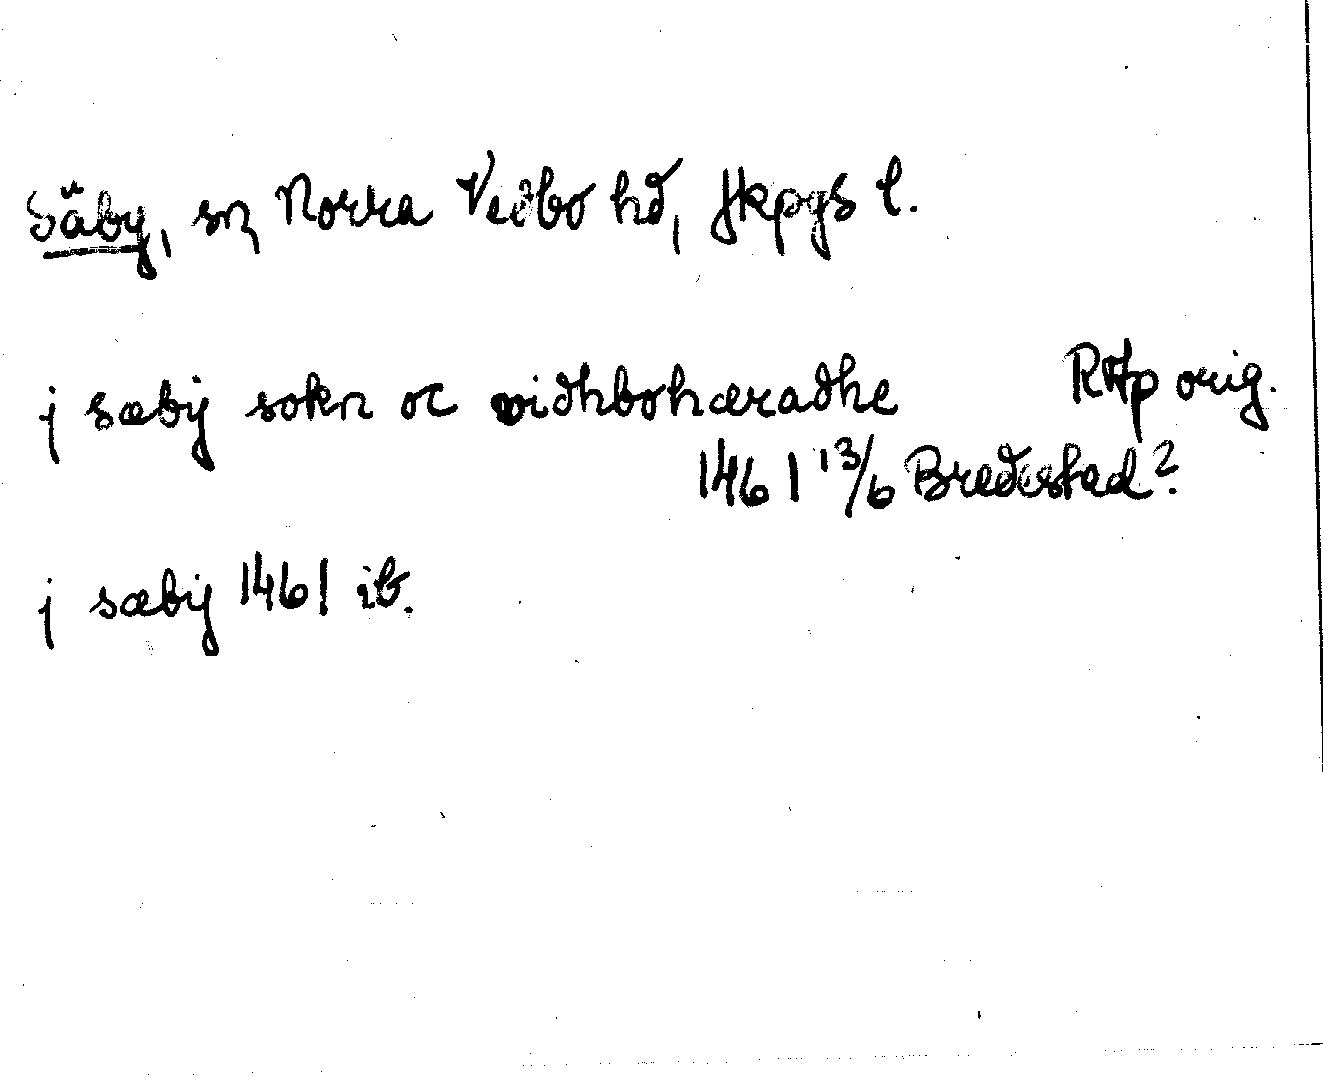 Säby, sn, Norra Vedbo hd, Jkpgs l.
j sæbij sokn oc vidhbohæradhe RAp orig.
1461 13/6 Bredestad?
j sæbij 1461 ib.